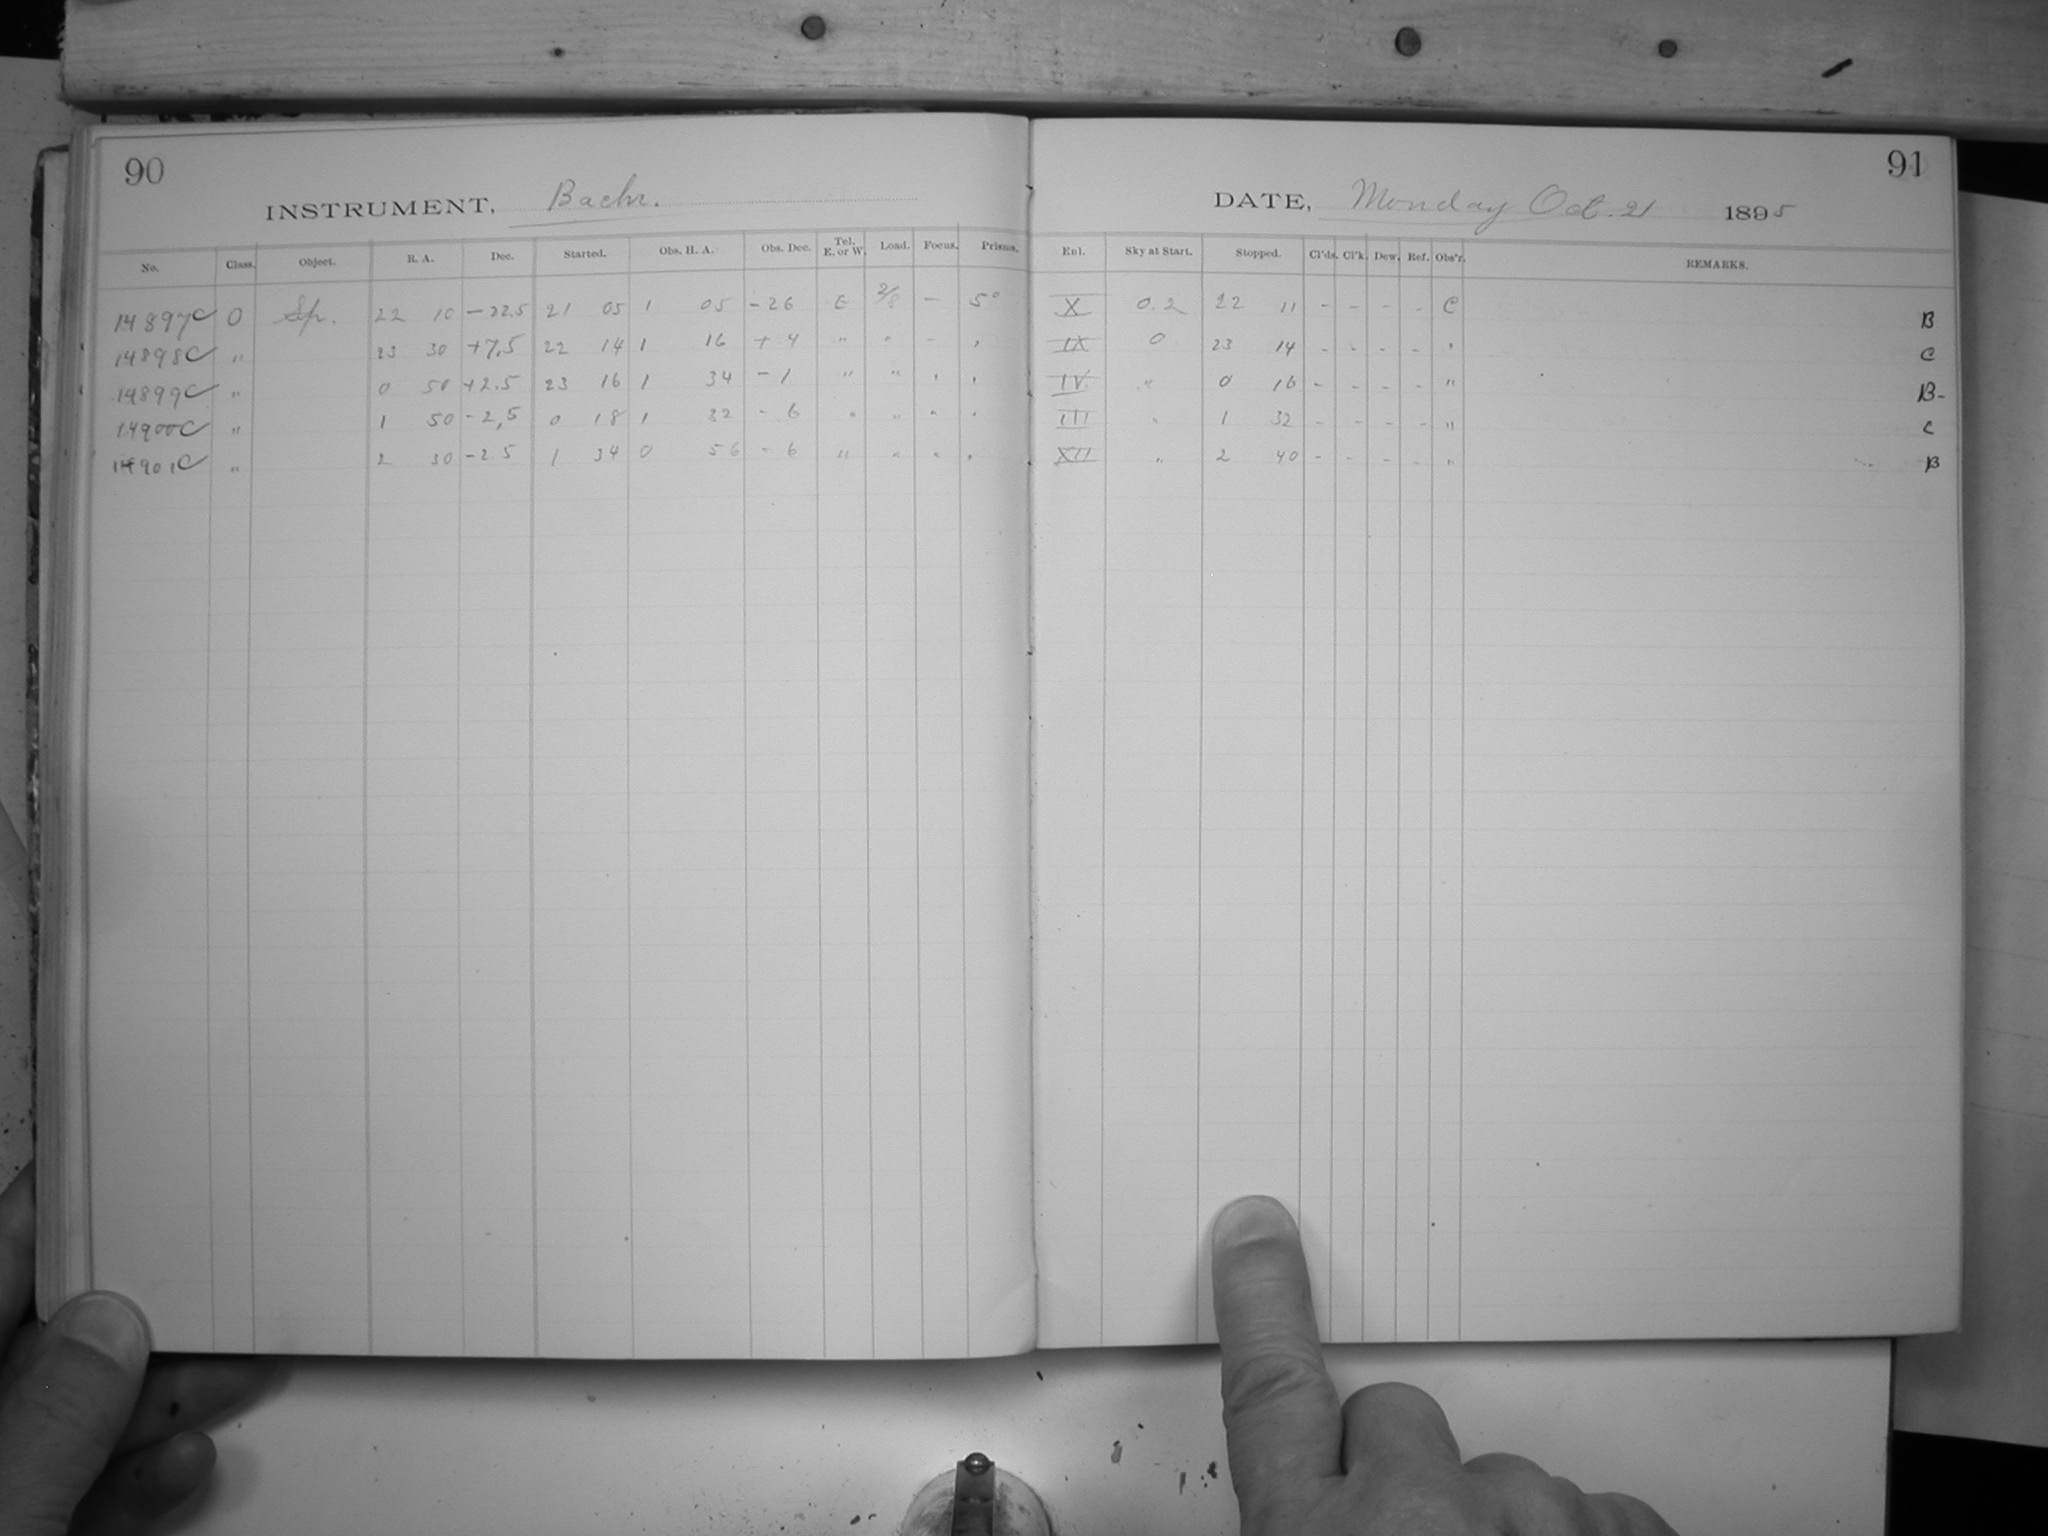 90
INSTRUMENT, Bache.
No. Class. Object. R. A. Dec. Started. Obs. H. A. Obs. Dec. Tel. E. or W. Load. Focus. Prisms.
14897C O Sp. 22 10 -22.5 21 05 1 05 -26 E 2/8 - 5°
14898C " 23 30 +7.5 22 14 1 16 + 4 " " - "
14899C " 0 50 +2.5 23 16 1 34 - 1 " " " "
14900C " 1 50 -2,5 0 18 1 32 - 6 " " " "
14901C " 2 30 -2.5 1 34 0 56 - 6 " " " "
91
DATE, Monday Oct. 21 1895
Enl. Sky at Start. Stopped. Cl'ds. Cl'k. Dew. Ref. Obs'r. REMARKS.
X 0.2 22 11 - - - - C B
IX 0 23 14 - - - - " C
IV. " 0 16 - - - - " B-
III " 1 32 - - - - " C
XII " 2 40 - - - - " B